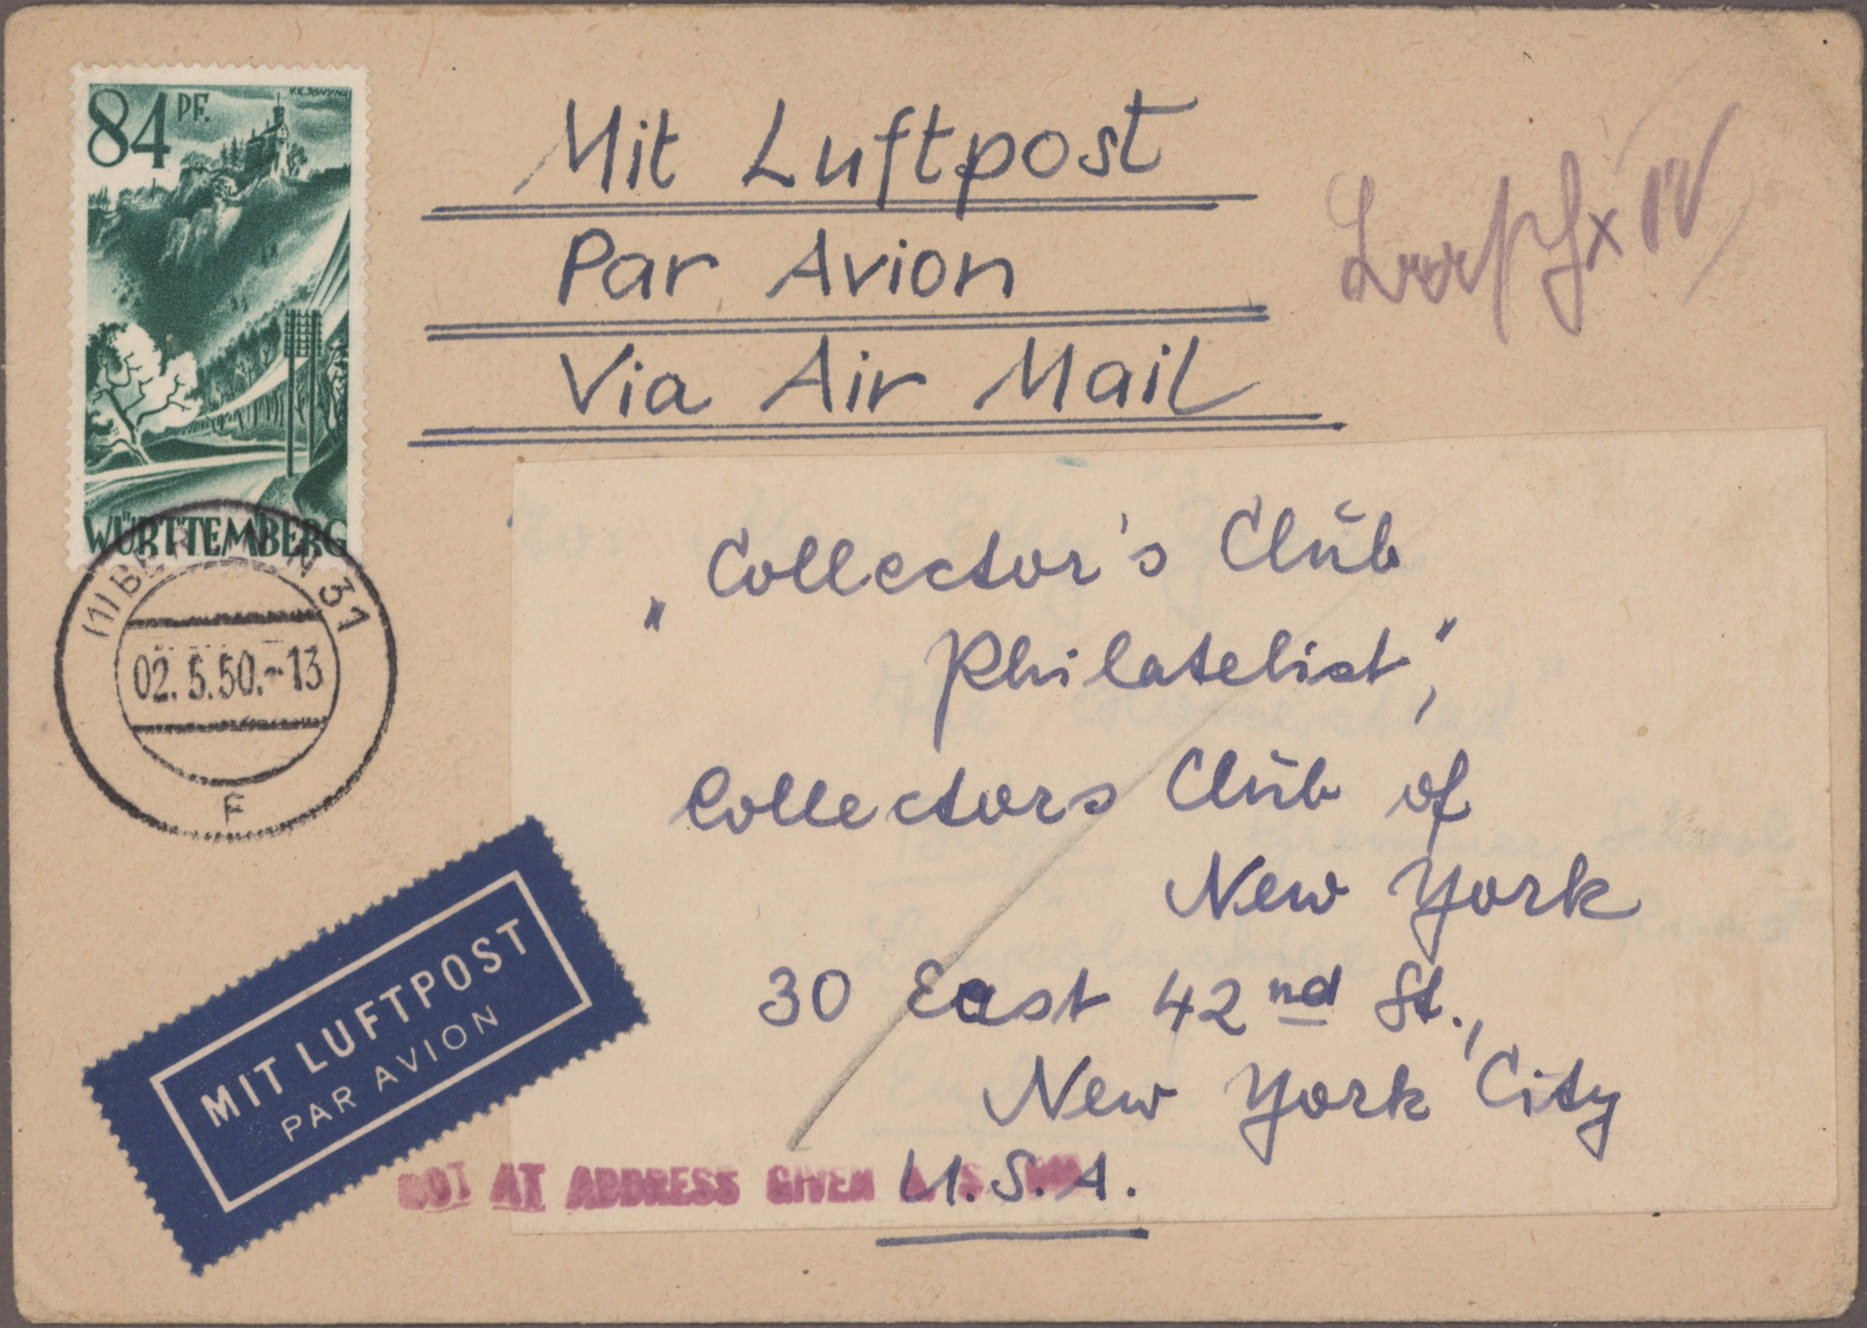 84 PF.
WÜRTTEMBERG
Mit Luftpost
Par Avion
Via Air Mail
31
02.5.50.-13
F
"Collector's Club
Philatelist",
Collectors Club of
New York
30 East 42nd St.,
New York City
U.S.A.
MIT LUFTPOST
PAR AVION
NOT AT ADDRESS GIVEN